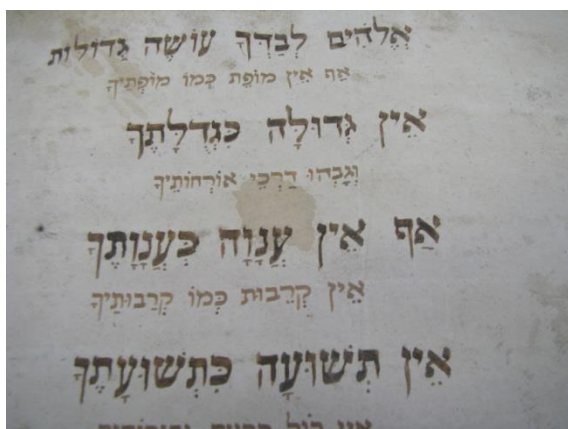 אֱלֹהִים לְבַדְּךָ עוֹשֶׂה גְדוֹלוֹת
אַף אֵין מוֹפֵת כְּמוֹ מוֹפְתֶיךָ
אֵין גְּדוּלָּה כִּגְדֻלָּתֶךָ
וְגָבְהוּ דַרְכֵי אוֹרְחוֹתֶיךָ
אַף אֵין עֲנָוָה כְּעַנְוָתֶךָ
אֵין קְרֵבוּת כְּמוֹ קְרֵבוּתֶיךָ
אֵין תְּשׁוּעָה כִּתְשׁוּעָתֶךָ